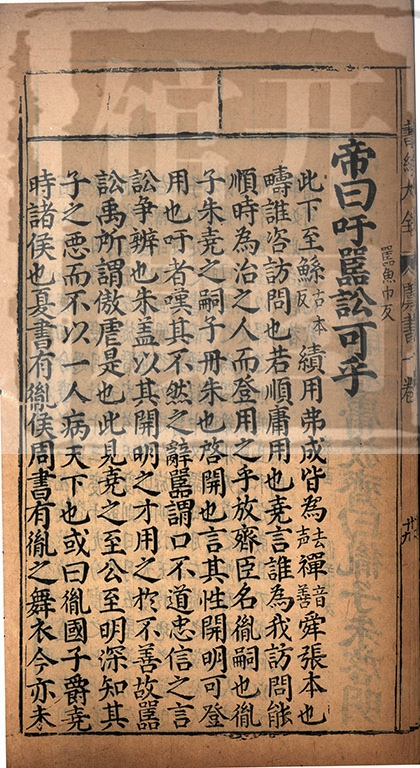 書經大全 虞書 一卷
帝曰吁嚚訟可乎嚚魚巾反
此下至鯀古本反績用弗成皆為去声禪音善舜張本也
疇誰咨訪問也若順庸用也堯言誰為我訪問能
順時為治之人而登用之乎放齊臣名胤嗣也胤
子朱堯之嗣子丹朱也啓開也言其性開明可登
用也吁者嘆其不然之辭嚚謂口不道忠信之言
訟爭辨也朱盖以其開明之才用之於不善故嚚
訟禹所謂傲虐是也此見堯之至公至明深知其
子之惡而不以一人病天下也或曰胤國子爵堯
時諸侯也夏書有胤侯周書有胤之舞衣今亦未